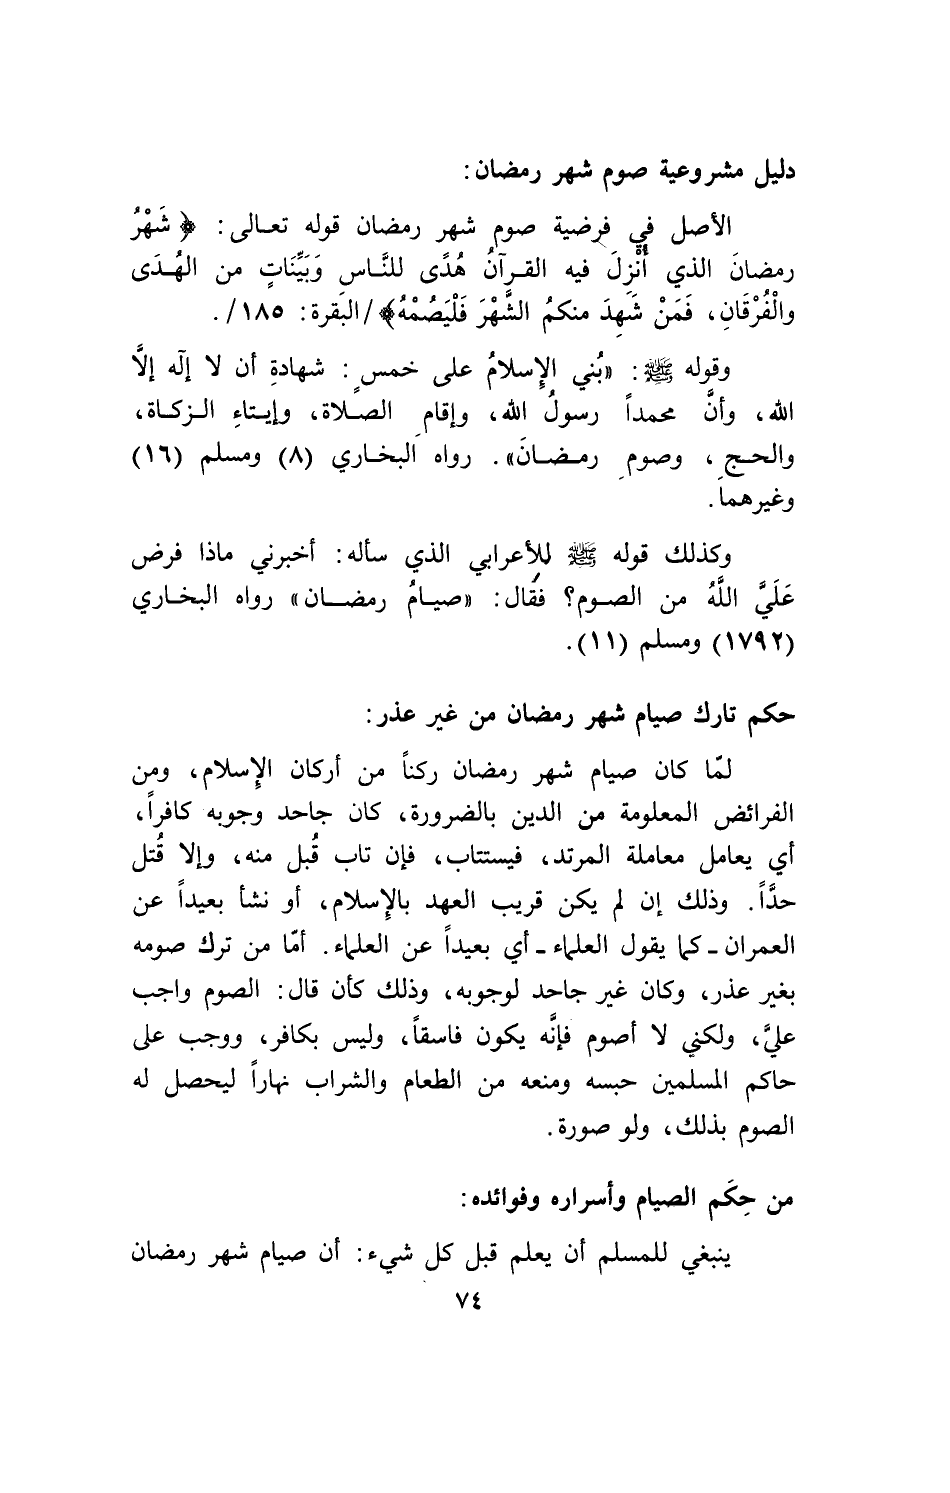 دليل مشروعية صوم شهر رمضان:
الأصل في فرضية صوم شهر رمضان قوله تعـالى: ﴿شَهْرُ
رمضانَ الذي أُنْزِلَ فيه القـرآنُ هُدًى للنَّـاسِ وَبَيِّنَاتٍ من الهُـدَى
والْفُرْقَانِ، فَمَنْ شَهِدَ منكمُ الشَّهْرَ فَلْيَصُمْهُ﴾/البَقرة: ١٨٥/.
وقوله ﷺ: «بُني الإِسلامُ على خمسٍ: شهادةِ أن لا إِلَه إلَّا
الله، وأنَّ محمداً رسولُ الله، وإقامِ الصـلاة، وإيـتاءِ الـزكـاة،
والحـجِ، وصومِ رمـضـانَ». رواه البخـاري (٨) ومسلم (١٦)
وغيرهما.
وكذلك قوله ﷺ للأعرابي الذي سأله: أخبرني ماذا فرض
عَلَيَّ اللَّهُ من الصـوم؟ فقال: «صيـامُ رمضـــان» رواه البخـاري
(١٧٩٢) ومسلم (١١).
حكم تارك صيام شهر رمضان من غير عذر:
لمّا كان صيام شهر رمضان ركناً من أركان الإِسلام، ومن
الفرائض المعلومة من الدين بالضرورة، كان جاحد وجوبه كافراً،
أي يعامل معاملة المرتد، فيستتاب، فإن تاب قُبل منه، وإلا قُتل
حدَّاً. وذلك إن لم يكن قريب العهد بالإِسلام، أو نشأ بعيداً عن
العمران ـ كما يقول العلماء ـ أي بعيداً عن العلماء. أمّا من ترك صومه
بغير عذر، وكان غير جاحد لوجوبه، وذلك كأن قال: الصوم واجب
عليَّ، ولكني لا أصوم فإنَّه يكون فاسقاً، وليس بكافر، ووجب على
حاكم المسلمين حبسه ومنعه من الطعام والشراب نهاراً ليحصل له
الصوم بذلك، ولو صورة.
من حِكَم الصيام وأسراره وفوائده:
ينبغي للمسلم أن يعلم قبل كل شيء: أن صيام شهر رمضان
٧٤